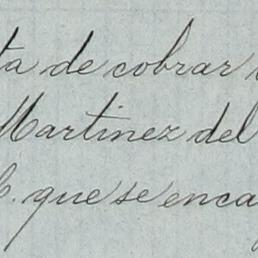 ta de cobrar
Martinez del
C. que se enca